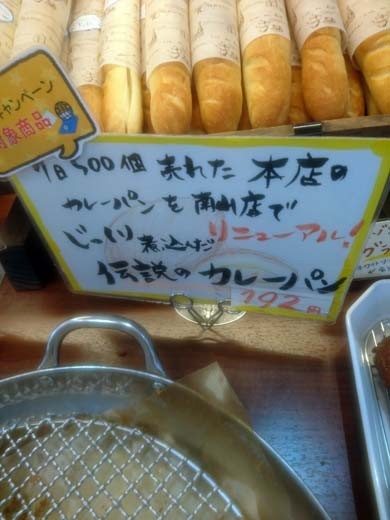 キャンペーン
対象商品
1日500個 売れた 本店の
カレーパンを南山店で
じっくり煮込んだ リニューアル!
伝説のカレーパン
192円